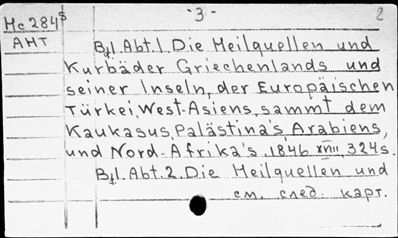 Mc 284⁵ -3- 2
AMT
Bd. Abt. 1. Die Heilquellen und
Kurbäder Griechenlands und
seiner Inseln, der Europäischen
Türkei, West-Asiens, sammt dem
Kaukasus, Palästina's Arabiens,
und Nord-Afrika's. 1846. XVIII, 324s.
Bd. 1. Abt. 2. Die Heilquellen und
см. след. карт.